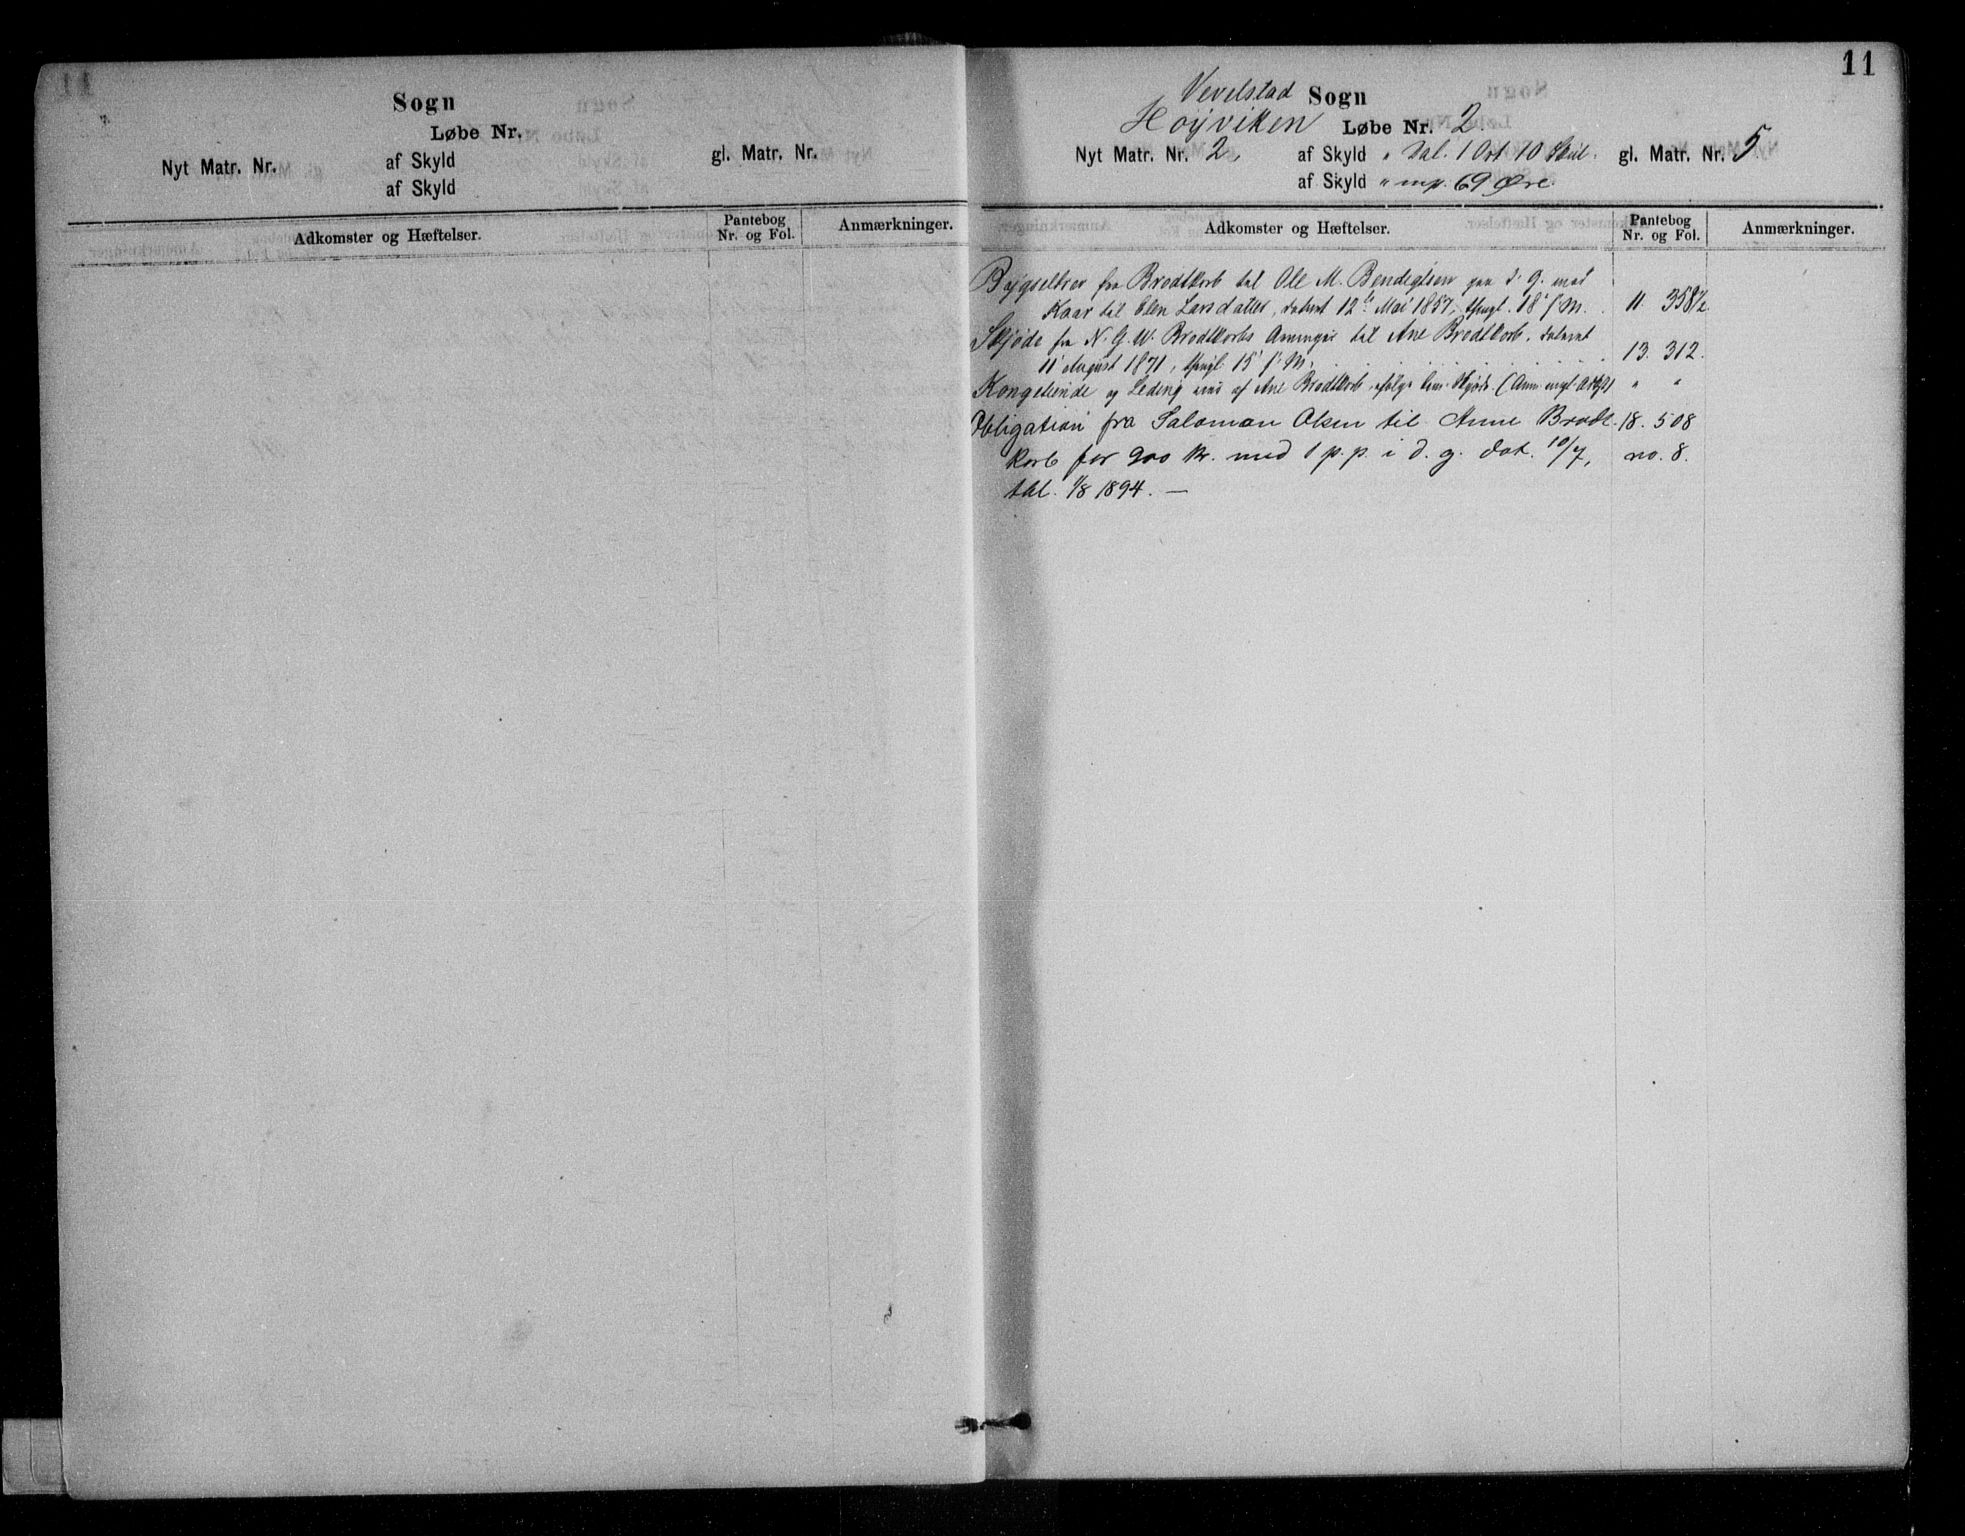 Sogn
Løbe Nr.
Nyt Matr. Nr. af Skyld gl. Matr. Nr.
af Skyld
Adkomster og Hæftelser. Pantebog Nr. og Fol. Anmærkninger.
11
Vevelstad Sogn
Høÿviken Løbe Nr. 2.
Nyt Matr. Nr. 2, af Skyld " Dal. 1 Ort 10 Skil. gl. Matr. Nr. 5
af Skyld " mp. 69 Øre.
Adkomster og Hæftelser. Pantebog Nr. og Fol. Anmærkninger.
Bygselbrev fra Brodtkorb til Ole M. Bendigtsen paa d. G. mod
Kaar til Elen Larsdatter, dateret 12te Mai 1857, thingl. 18 s. M. 11 358/2.
Skjøde fra N. G. W. Brodtkorbs Arvinger til Ane Brodtkorb, dateret
11 August 1871, thingl. 15 s. M. 13. 312.
Kongetiende og Leding af Ane Brodtkorb ifølge Skjøde. " "
Obligation fra Salomon Olsen til Anne Brodt- 18. 508
korb for 900 kr. med 1 p.p. i d. g. dat. 10/7, no. 8.
tbl. 1/8 1894. —